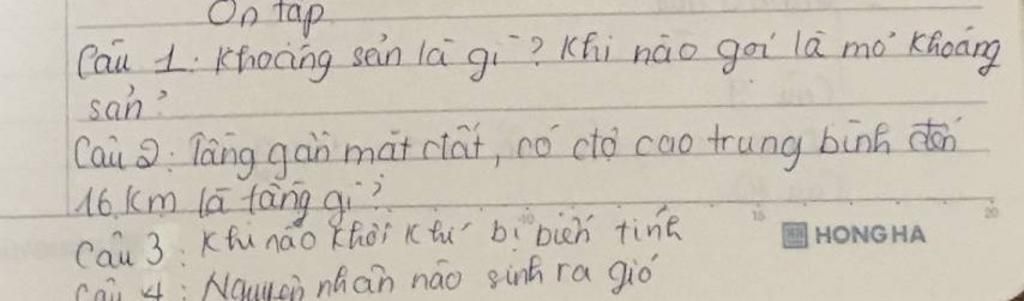 Ôn tập
Câu 1: Khoáng sản là gì? Khi nào gọi là mỏ khoáng
sản?
Câu 2: Tầng gần mặt đất, có độ cao trung bình đến
16 km là tầng gì?
Câu 3: Khi nào khối khí bị biến tính
10 15 20
HONG HA
Câu 4: Nguyên nhân nào sinh ra gió